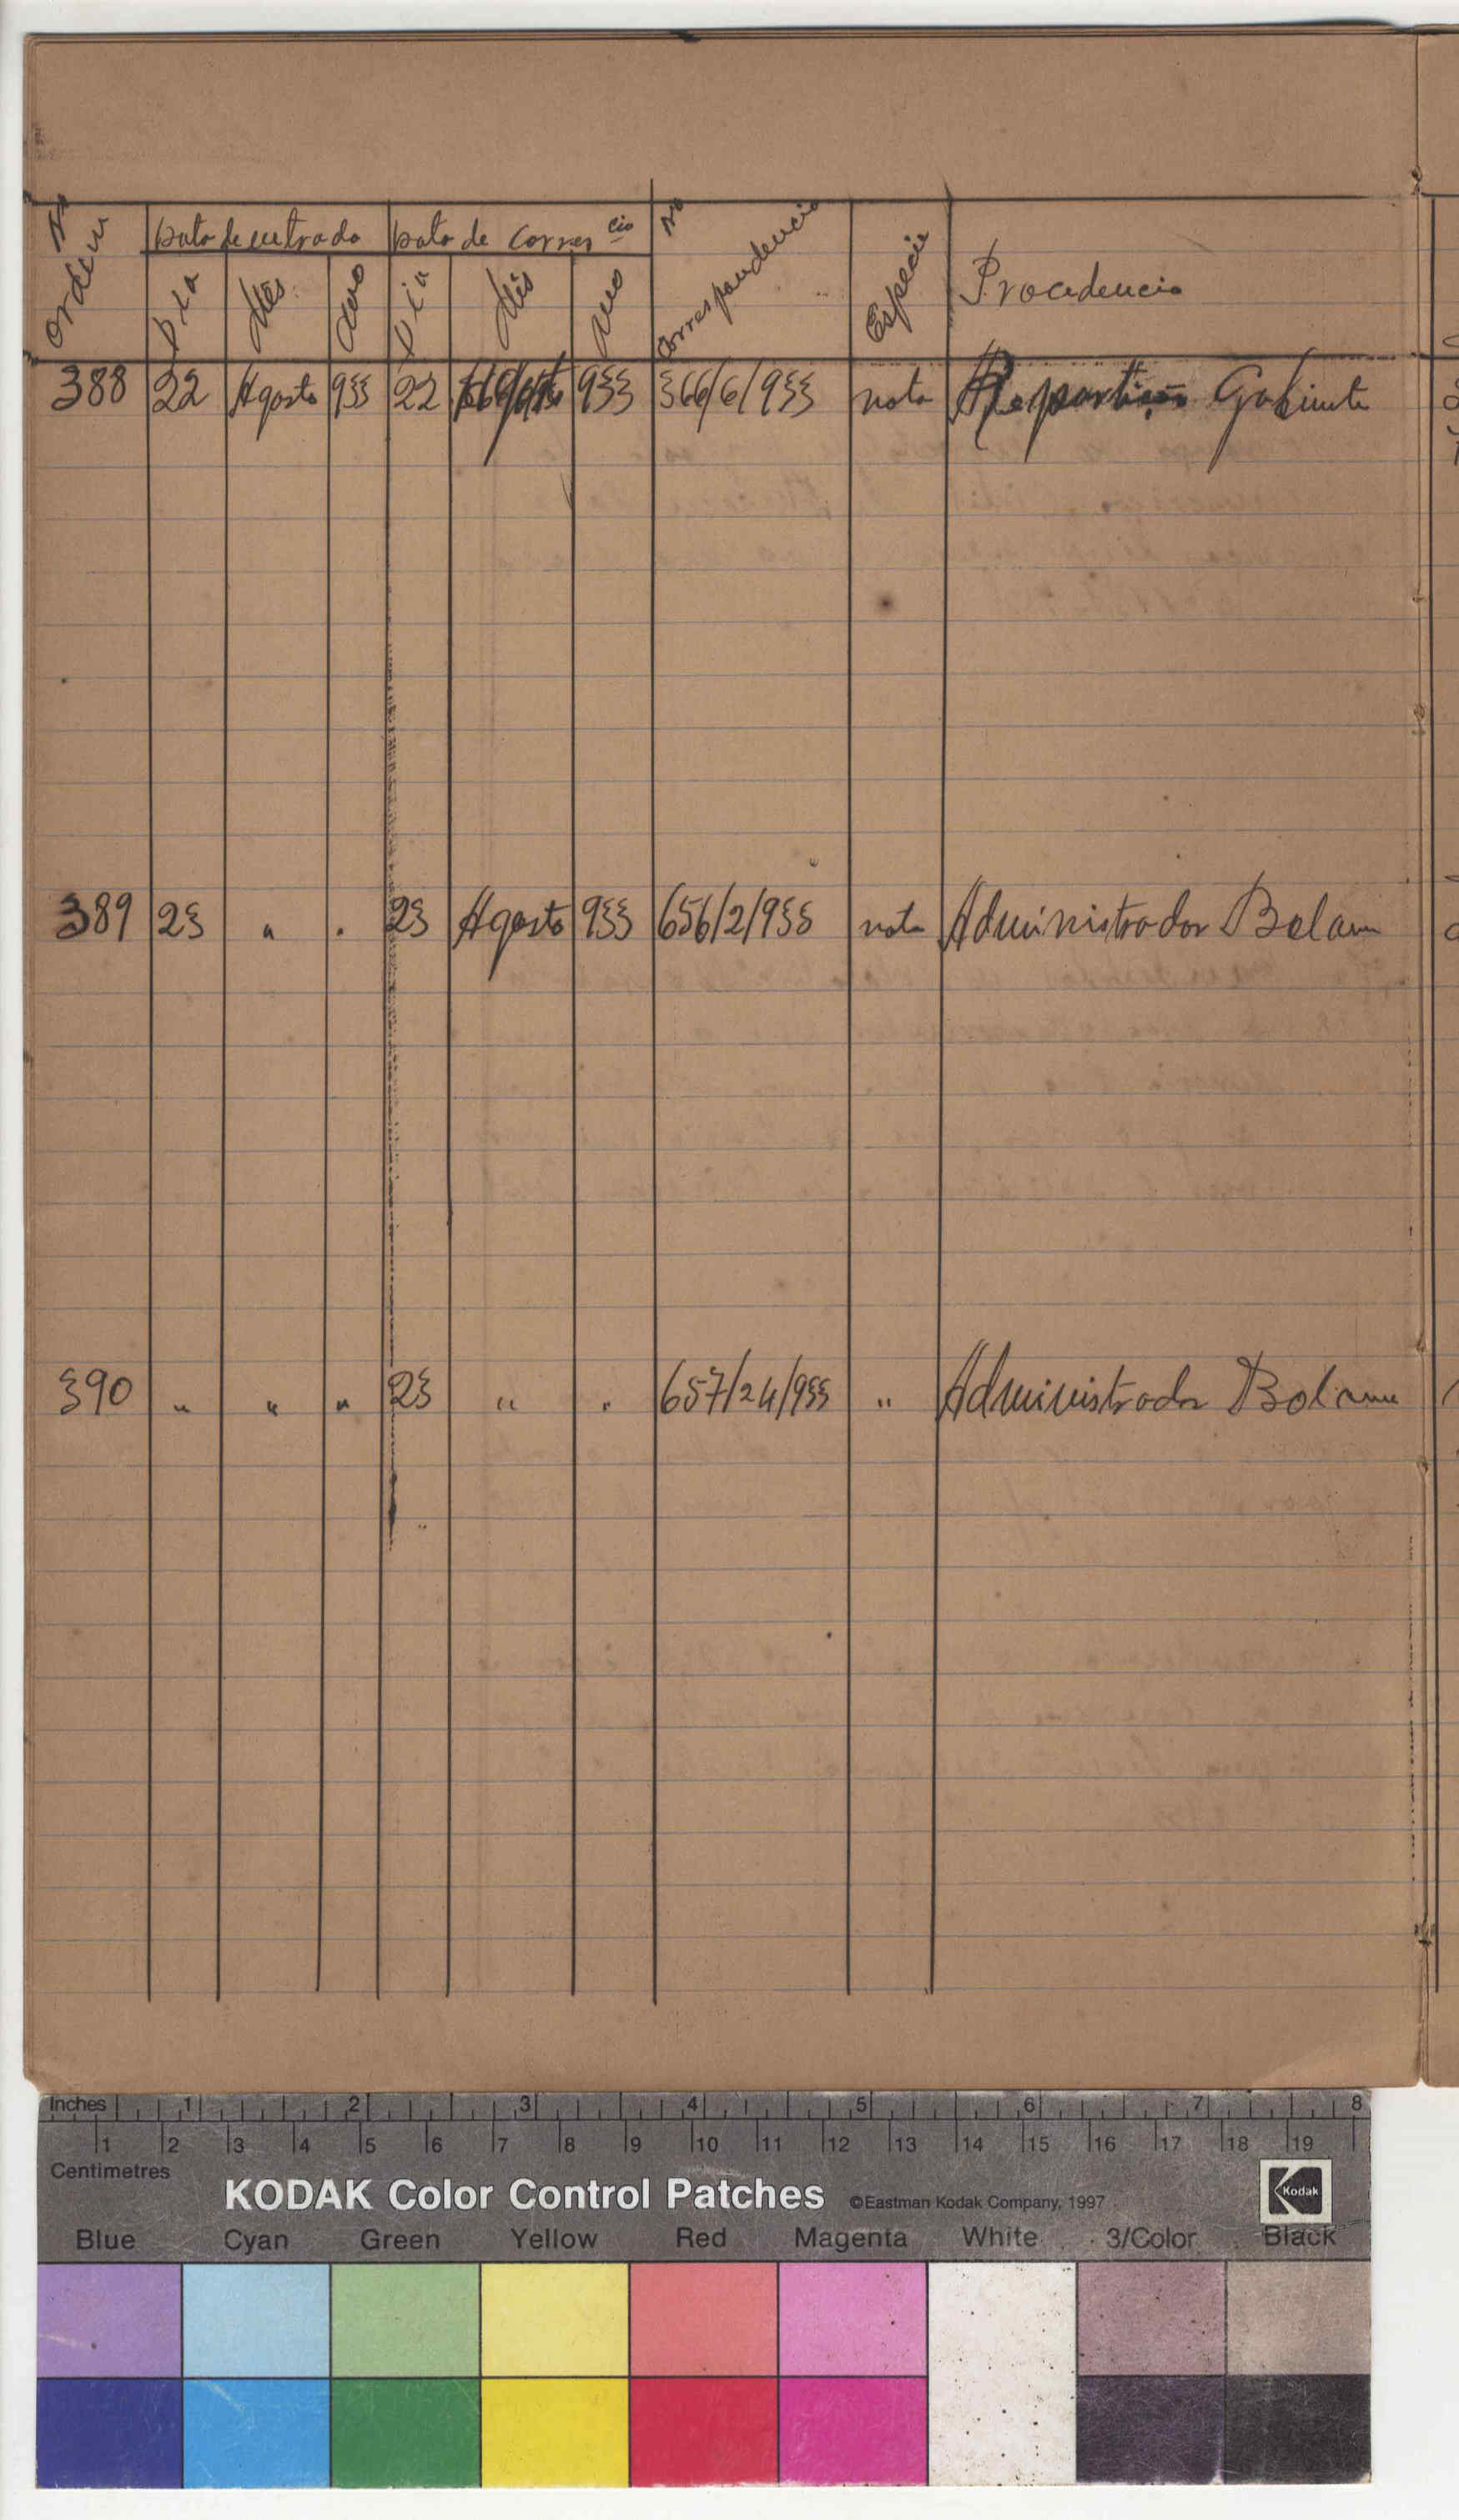 Nº Ordem Data de entrada Data de corres cia Nº Correspondencia Especie Procedencia
Dia Mês Ano Dia Mês Ano
388 22 Agosto 933 22 933 366/6/933 nota Repartição Gabinete
389 23 " " 23 Agosto 933 656/2/933 nota Administrador Bolama
390 " " " 23 " " 657/24/933 " Administrador Bolama
Inches 1 2 3 4 5 6 7 8
1 2 3 4 5 6 7 8 9 10 11 12 13 14 15 16 17 18 19
Centimetres
KODAK Color Control Patches ©Eastman Kodak Company, 1997 Kodak
Blue Cyan Green Yellow Red Magenta White 3/Color Black